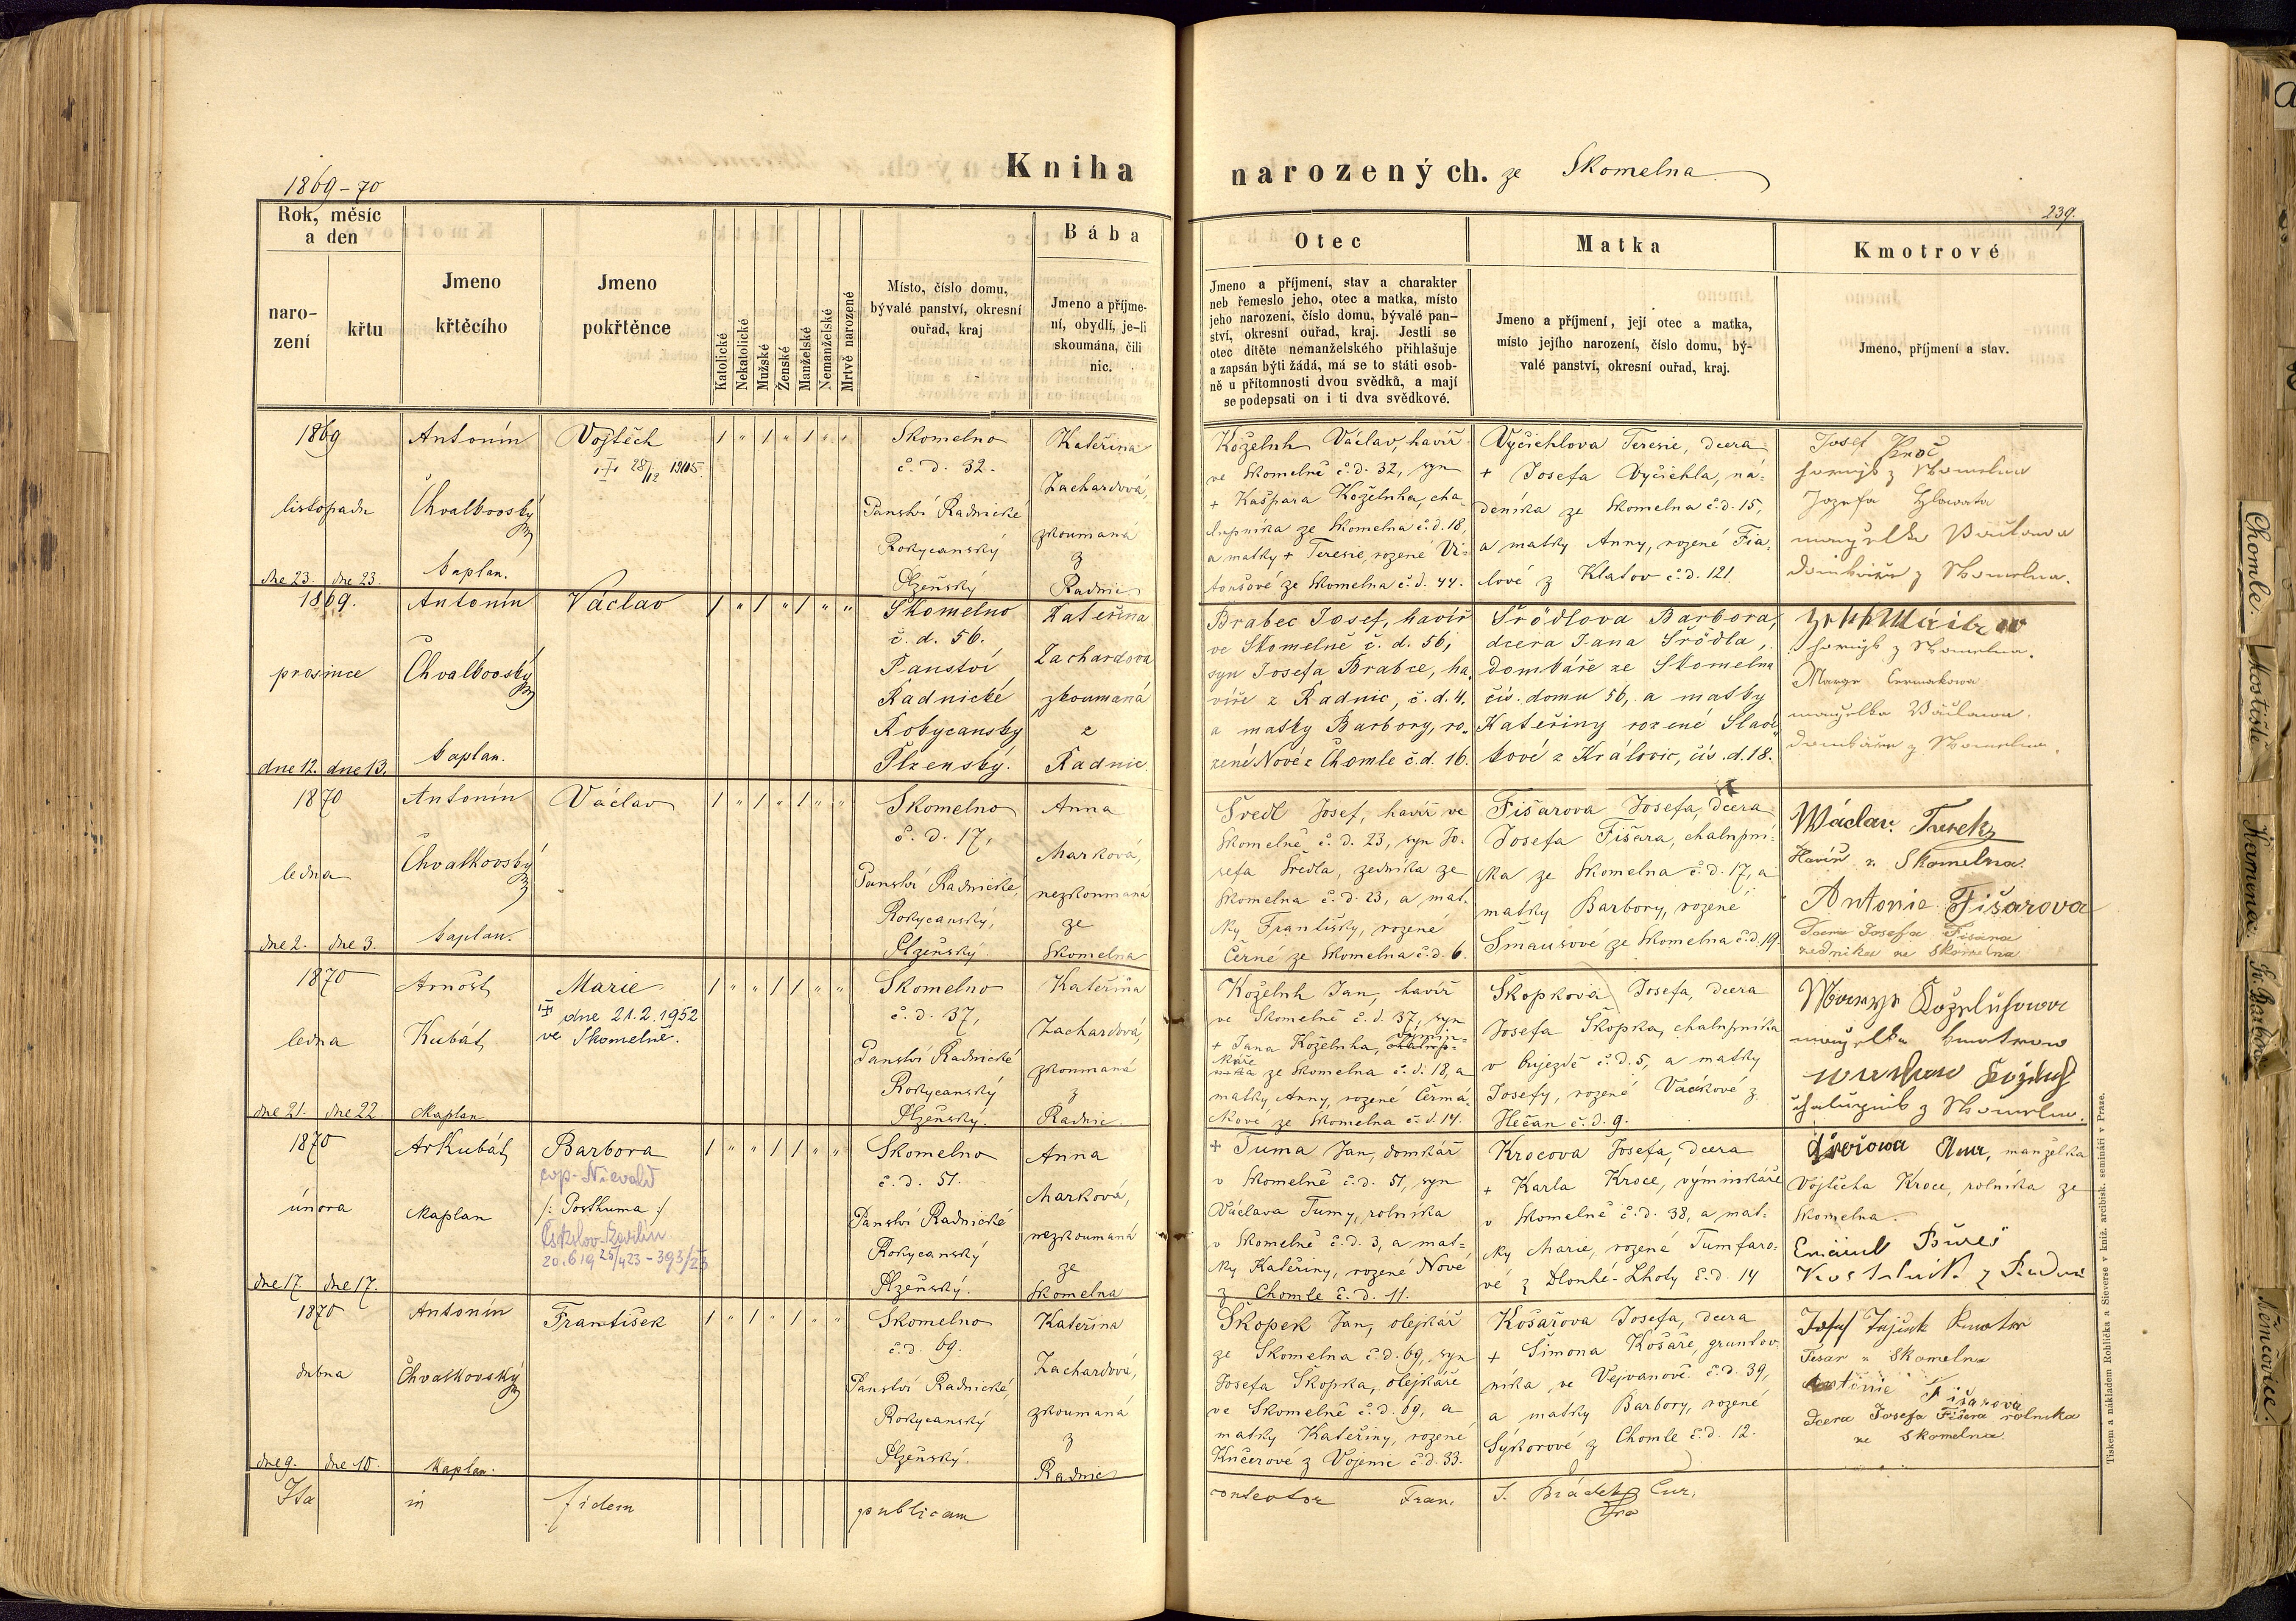 1869-70
Kniha
narozených. ze Skomelna
239.
Rok, měsíc
a den
naro-
zení
křtu
Jmeno
křtěcího
Jmeno
pokřtěnce
Katolické
Nekatolické
Mužské
Ženské
Manželské
Nemanželské
Mrtvě narozené
Místo, číslo domu,
bývalé panství, okresní
ouřad, kraj
Bába
Jmeno a příjme-
ní, obydlí, je-li
skoumána, čili
nic.
Otec
Jmeno a příjmení, stav a charakter
neb řemeslo jeho, otec a matka, místo
jeho narození, číslo domu, bývalé pan-
ství, okresní ouřad, kraj. Jestli se
otec dítěte nemanželského přihlašuje
a zapsán býti žádá, má se to státi osob-
ně u přítomnosti dvou svědků, a mají
se podepsati on i ti dva svědkové.
Matka
Jmeno a příjmení, její otec a matka,
místo jejího narození, číslo domu, bý-
valé panství, okresní ouřad, kraj.
Kmotrové
Jmeno, příjmení a stav.
1869
listopadu
dne 23. dne 23.
Antonín
Chvalkovský
kaplan.
Vojtěch
28/12 1905.
/ " / " / " "
Skomelno
č. d. 32.
Panství Radnické
Rokycanský
Plzeňský
Kateřina
Zachardová,
zkoumaná
z
Radnic
Koželuh Václav, havíř
ve Skomelně č. d. 32, syn
+ Kašpara Koželuha, cha-
lupníka ze Skomelna č. d. 18,
a matky + Teresie, rozené Vi-
toušové ze Skomelna č. d. 44.
Vyčichlova Teresie, dcera
+ Josefa Vyčichla, ná-
deníka ze Skomelna č. d. 15,
a matky Anny, rozené Fia-
lové z Klatov č. d. 121.
Josef Kroč
horníjk z Skomelna
Jozefa Hlawata
manželka Wáclawa
domkáře z Skomelna.
1869.
prosince
dne 12. dne 13.
Antonín
Chvalkovský
kaplan.
Václav
/ " / " / " "
Skomelno
č. d. 56.
Panství
Radnické
Rokycanský
Plzenský.
Kateřina
Zachardova
zkoumaná
z
Radnic.
Brabec Josef, havíř
ve Skomelně č. d. 56,
syn Josefa Brabce, ha-
víře z Radnic, č. d. 4.
a matky Barbory, ro-
zené Nové z Chomle č. d. 16.
Šrödlova Barbora,
dcera Jana Šrödla,
domkáře ze Skomelna
čís. domu 56, a matky
Kateřiny rozené Slav-
kové z Královic, čís. d. 18.
horníjk z Skomelna.
Marye Cermakowa
manželka Wáclawa
domkáře z Skomelna.
1870
ledna
dne 2. dne 3.
Antonín
Chvalkovský
kaplan.
Václav
/ " / " / " "
Skomelno
č. d. 17,
Panství Radnické,
Rokycanský,
Plzeňský.
Anna
Marková,
nezkoumaná
ze
Skomelna
Švedl Josef, havíř ve
Skomelně č. d. 23, syn Jo-
sefa Švedla, zedníka ze
Skomelna č. d. 23, a mat-
ky Františky, rozené
Černé ze Skomelna č. d. 6.
Fišarova Josefa, dcera
Josefa Fišara, chalupní-
ka ze Skomelna č. d. 17, a
matky Barbory, rozené
Šmausové ze Skomelna č. d. 19.
Wáclav Turek
Havíř z Skomelna
Antonie Fišarova
Dcera Josefa Fišara
zednika ze Skomelna
1870
ledna
dne 21. dne 22.
Arnošt
Kubát,
kaplan
Marie
dne 21.2.1952
ve Skomelně.
/ " " / / " "
Skomelno
č. d. 37,
Panství Radnické
Rokycanský
Plzeňský.
Kateřina
Zachardová,
zkoumaná
z
Radnic.
Koželuh Jan, havíř
ve Skomelně č. d. 37, syn
+ Jana Koželuha, výmin-
káře ze Skomelna č. d. 18, a
matky Anny, rozené Čermá-
kové ze Skomelna č. d. 14.
Škopkova Josefa, dcera
Josefa Škopka, chalupníka
v Oujezdě č. d. 5, a matky
Josefy, rozené Vackové z
Hečan č. d. 9.
Marye Koželuhowa
manželka kmotrow
Koželuh
chalupník z Skomelna.
1870
února
dne 17. dne 17.
Ar Kubát,
kaplan
Barbora
/: Posthuma :/
/ " " / / " "
Skomelno
č. d. 51.
Panství Radnické
Rokycanský
Plzeňský.
Anna
Marková,
nezkoumaná
ze
Skomelna
+ Tuma Jan, domkář
v Skomelně č. d. 51, syn
Václava Tumy, rolníka
v Skomelně č. d. 3, a mat-
ky Kateřiny, rozené Nové
z Chomle č. d. 11.
Krocova Josefa, dcera
+ Karla Kroce, výminkáře
v Skomelně č. d. 38, a mat-
ky Marie, rozené Tumfaro-
vé z Dlouhé-Lhoty č. d. 14
Anna, manželka
Vojtěcha Kroce, rolníka ze
Skomelna.
Bureš
1870
dubna
dne 9. dne 10.
Antonín
Chvalkovský
kaplan.
František
/ " / " / " "
Skomelno
č. d. 69.
Panství Radnické,
Rokycanský
Plzeňský.
Kateřina
Zachardová,
zkoumaná
z
Radnic
Škopek Jan, olejkář
ze Skomelna č. d. 69, syn
Josefa Škopka, olejkáře
ve Skomelně č. d. 69, a
matky Kateřiny, rozené
Kučerové z Vojenic č. d. 33.
Košařova Josefa, dcera
+ Šimona Košaře, gruntov-
níka ve Vejvanově č. d. 39,
a matky Barbory, rozené
Sýkorové z Chomle č. d. 12.
Josef kmotr
Tesar z Skomelna
Antonie Fišarova
dcera Josefa Fišera rolnika
ze Skomelna
Ita in fidem publicam
contestor Fran. S. Brádek Cur.
Tiskem a nákladem Rohlíčka a Sieverse v kníž. arcibisk. semináři v Praze.
Chomle.
Mostiště
Kamenna.
Sv. Barbora
Němčovice.